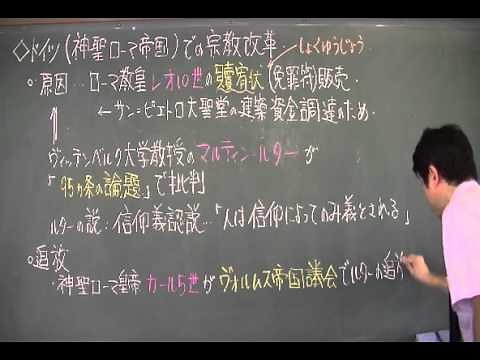 ◇ドイツ(神聖ローマ帝国)での宗教改革
しょくゆうじょう
○原因…ローマ教皇レオ10世の贖宥状(免罪符)販売.
←サン=ピエトロ大聖堂の建築資金調達のため.
ヴィッテンベルク大学教授のマルティン・ルターが
「95ヵ条の論題」で批判
ルターの説:信仰義認説…「人は信仰によってのみ義とされる」
○追放
・神聖ローマ皇帝カール5世がヴォルムス帝国議会でルターの追